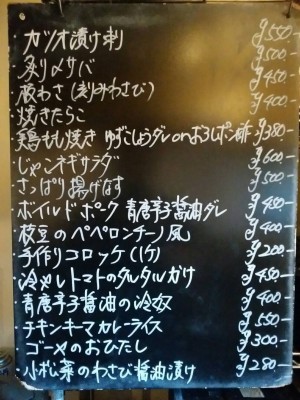 カツオ漬け刺 ¥550-
炙り〆サバ ¥500-
板わさ(刻みわさび) ¥450-
焼きたらこ ¥400-
鶏もも焼き ゆずこしょうダレ or おろしポン酢 ¥380-
じゃこネギサラダ ¥600-
さっぱり揚げなす ¥500-
ボイルドポーク 青唐辛子醤油ダレ ¥450-
枝豆のペペロンチーノ風 ¥400-
手作りコロッケ(1ケ) ¥200-
冷やしトマトのタルタルがけ ¥450-
青唐辛子醤油の冷奴 ¥400-
チキンキーマカレーライス ¥550-
ゴーヤのおひたし ¥300-
小松菜のわさび醤油漬け ¥280-